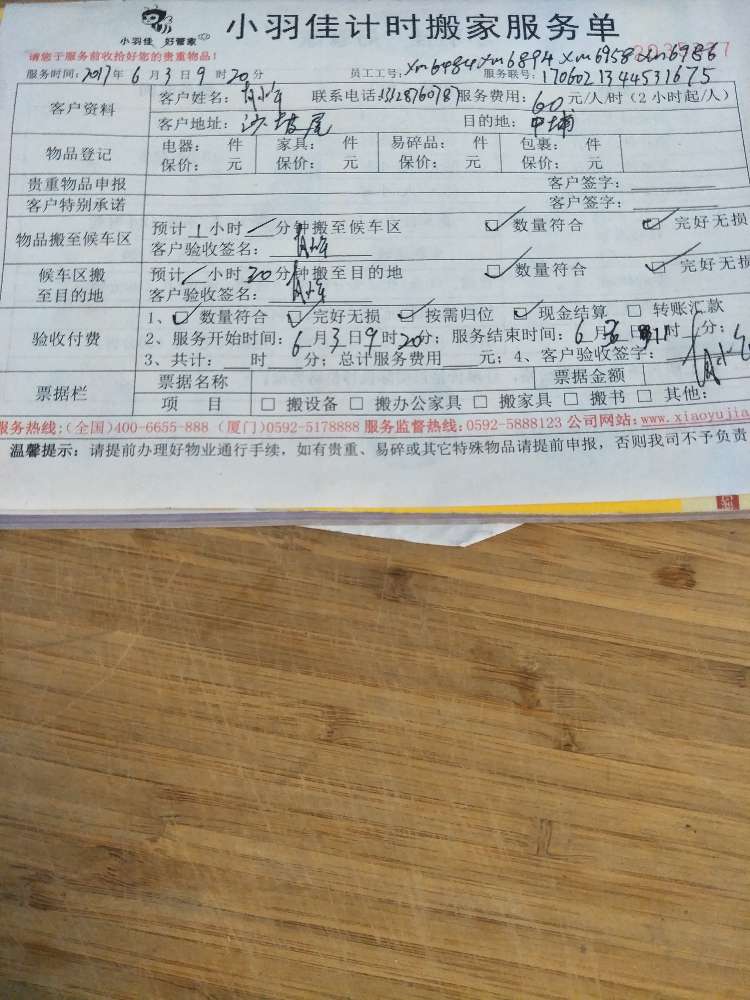 小羽佳 好管家
小羽佳计时搬家服务单
请您于服务前收拾好您的贵重物品!
服务时间:2017年 6 月 3 日 9 时 20 分 员工工号:xm6484 xm6894 xm6958 xm6986
服务联号:1706021344531675
客户资料 客户姓名: 联系电话: 服务费用:60 元/人/时(2小时起/人)
客户地址:沙坡尾 目的地:中埔
物品登记 电器: 件 家具: 件 易碎品: 件 包裹: 件
保价: 元 保价: 元 保价: 元 保价: 元
贵重物品申报 客户签字:
客户特别承诺 客户签字:
物品搬至候车区 预计 1 小时 / 分钟搬至候车区 ☑ 数量符合 ☑ 完好无损
客户验收签名:
候车区搬至目的地 预计 / 小时 20 分钟搬至目的地 ☑ 数量符合 ☑ 完好无损
客户验收签名:
验收付费 1、☑ 数量符合 ☑ 完好无损 ☑ 按需归位 ☑ 现金结算 □ 转账汇款
2、服务开始时间:6月3日9时20分;服务结束时间:6月 日 时 分;
3、共计: 时 分;总计服务费用 元;4、客户验收签字:
票据栏 票据名称 票据金额
项 目 □ 搬设备 □ 搬办公家具 □ 搬家具 □ 搬书 □ 其他:
服务热线:(全国)400-6655-888 (厦门)0592-5178888 服务监督热线:0592-5888123 公司网站:www.xiaoyujia
温馨提示:请提前办理好物业通行手续,如有贵重、易碎或其它特殊物品请提前申报,否则我司不予负责